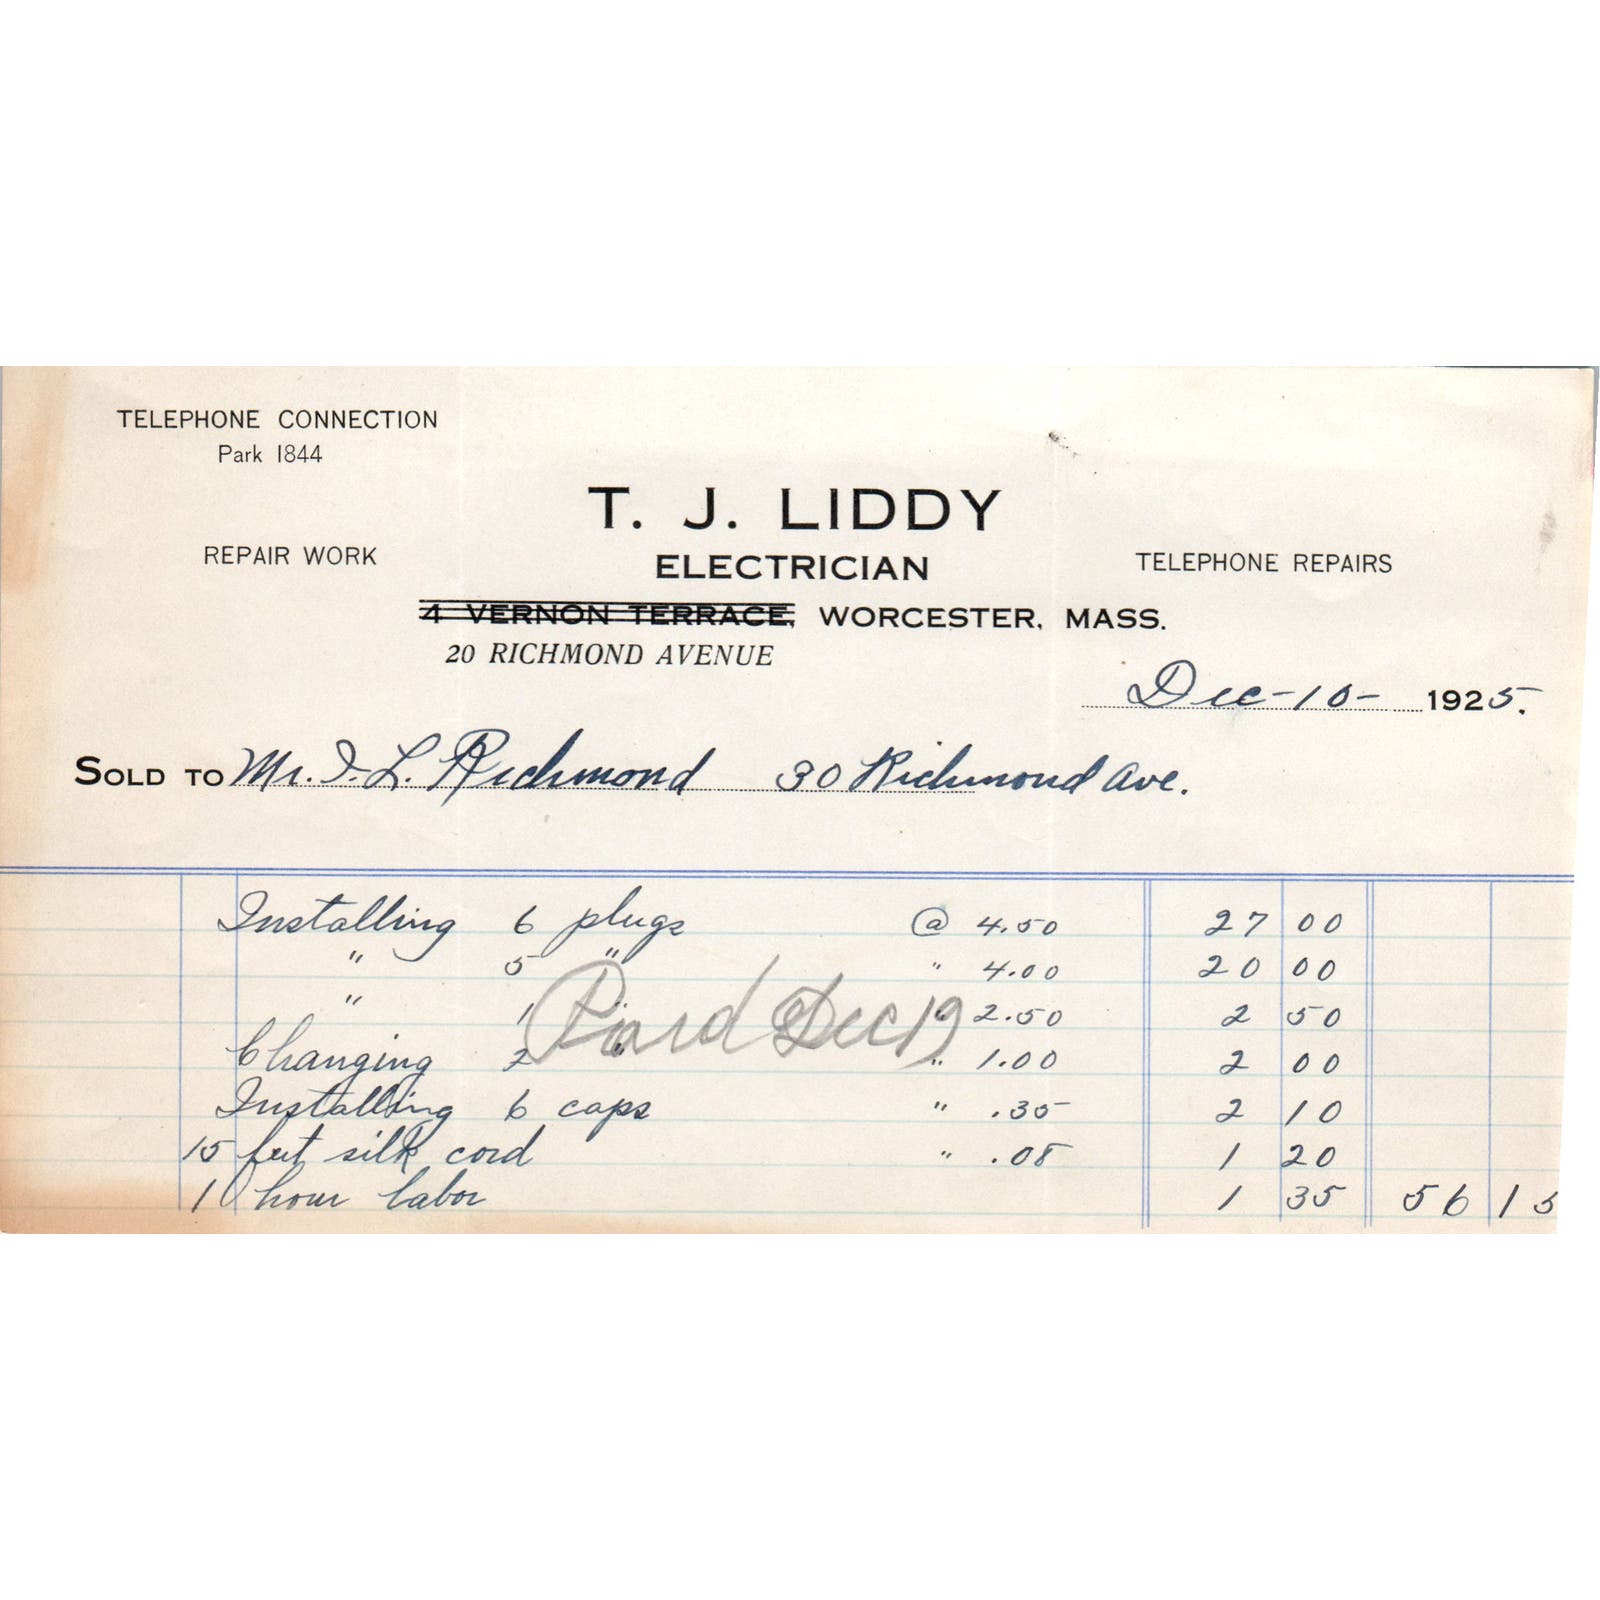 TELEPHONE CONNECTION
Park 1844
T. J. LIDDY
REPAIR WORK
ELECTRICIAN
TELEPHONE REPAIRS
4 VERNON TERRACE, WORCESTER, MASS.
20 RICHMOND AVENUE
Dec-10- 1925.
SOLD TO Mr. I. L. Richmond 30 Richmond Ave.
Installing 6 plugs @ 4.50 27 00
" 5 " " 4.00 20 00
" 1 " " 2.50 2 50
Paid Dec 19
Changing 2 " " 1.00 2 00
Installing 6 caps " .35 2 10
15 feet silk cord " .08 1 20
1 hour labor 1 35 56 15